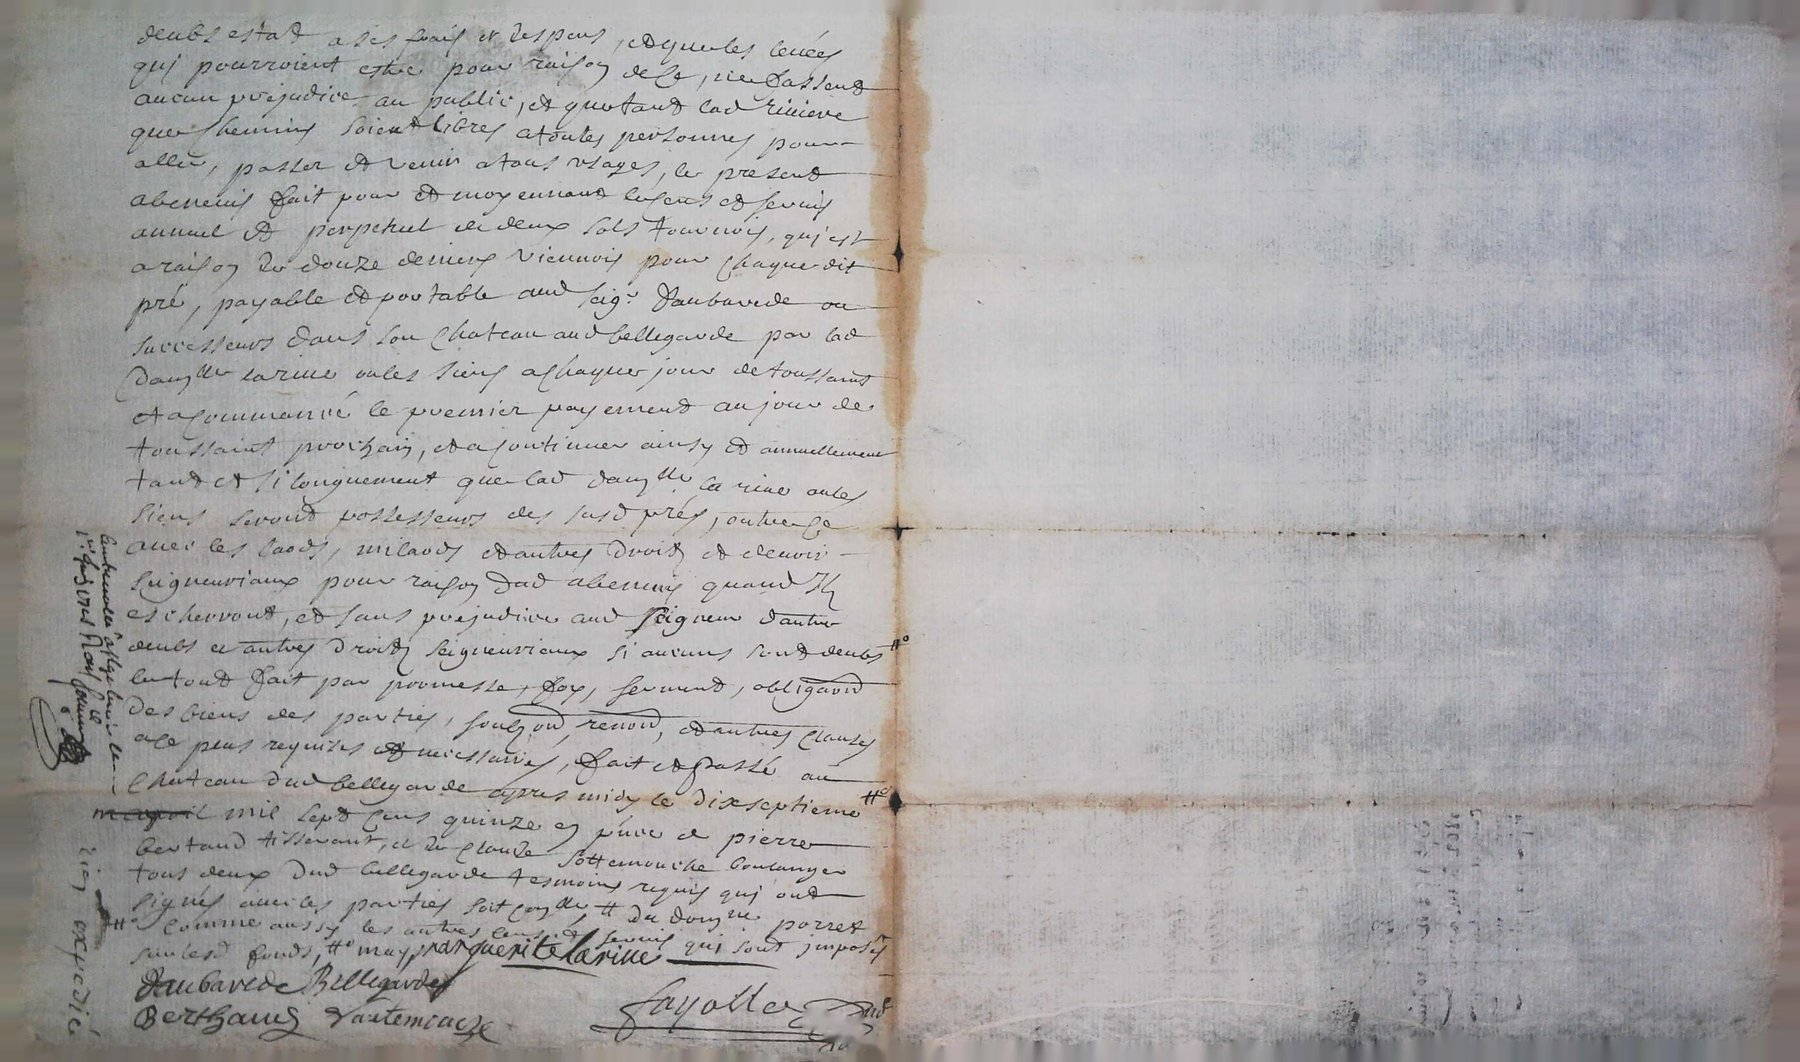 deubs estat a ses frais et despens, et que les levées
qui pourroient estre pour raison de ce, ne fassent
aucun prejudice au public, et que tant lad riviere
que chemins soient libres a toutes personnes pour
aller, passer et venir a tous usages, le present
abenevis fait pour et moyennant le cens et servis
annuel et perpetuel de deux sols tournois, qu'est
a raison de douze deniers viennois pour chaque dit
pré, payable et portable aud seigr Daubarede ou
successeurs dans son chateau aud bellegarde par lad
damlle larive ou les siens a chaque jour de toussaint
et a commancé le premier payement au jour de
toussaint prochain, et a continuer ainsy et annuellement
tant et si longuement que lad damlle la rive ou les
siens seront possesseurs des susd prés, outre ce
avec les laods, milaods et autres droits et devoirs
seigneuriaux pour raison dud abenevis quand Ils
escherront, et sans prejudice aud seigneur d'autre
deubs et autres droits seigneuriaux si aucuns sont deubs #o
le tout fait par promesse, foy, serment, obligaōn
des biens des parties, soubzōn, renoōn, et autres clauses
a ce plus requises et necessaires, fait et passé au
chateau dud bellegarde apres midy le dixseptieme #o
mil sept cens quinze en p̄nce de pierre
bertaud tisserant, et de claude sottemouche boulanger
tous deux dud bellegarde tesmoins requis qui ont
signés avec les parties
#o comme aussy les autres cens et servis qui sont imposés
sur lesd fonds, #o may, marguerite larive
Daubarede Bellegarde
Berthaud
fayolle
rien expedié